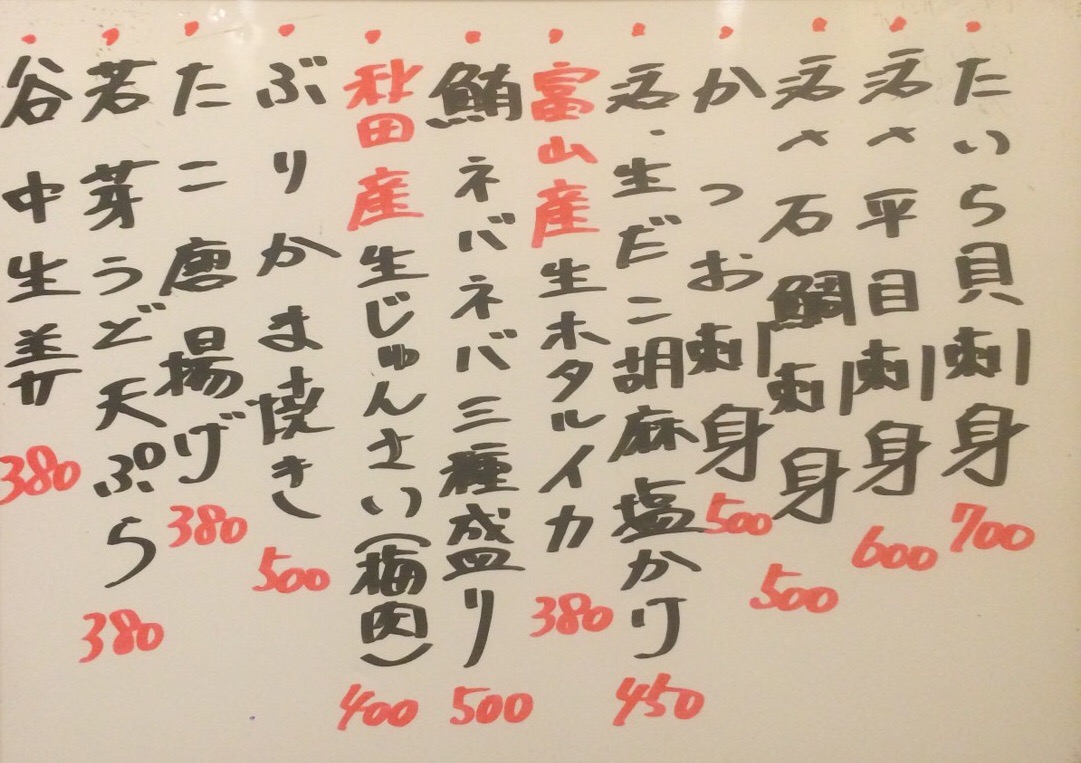 たいら貝刺身 700
活〆平目刺身 600
活〆石鯛刺身 500
かつお刺身 500
活・生だこ胡麻塩かけ 450
富山産生ホタルイカ 380
鮪ネバネバ三種盛り 500
秋田産生じゅんさい(梅肉) 400
ぶりかま焼き 500
たこ唐揚げ 380
若芽うど天ぷら 380
谷中生姜 380